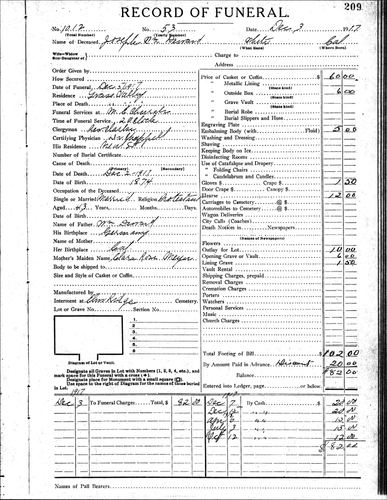 209
RECORD OF FUNERAL.
No. 1012 No. 53 Dec. 3 1917
(Total Number) (Yearly Number)
Name of Deceased Joseph White Cal
(What Race) (Where Born)
Charge to
Address
Order Given by
How Secured
Date of Funeral Dec 3rd 1917
Residence Grass Valley
Place of Death
Funeral Services at M. E. Church
Time of Funeral Service 2 o'clock
Clergyman Rev
Certifying Physician Dr
His Residence Neal St
Number of Burial Certificate
Cause of Death
(Primary) (Secondary)
Date of Death Dec 2 1917
Date of Birth 1874
Occupation of the Deceased
Single or Married Married Religion Protestant
Aged 43 Years Months, Days.
Name of Father Wm
His Birthplace Germany
Name of Mother
Her Birthplace
Mother's Maiden Name Clara Rosa Meyer
Body to be shipped to
Size and Style of Casket or Coffin
Manufactured by
Interment at Elm Ridge Cemetery.
Lot or Grave No. Section No.
Diagram of Lot or Vault.
Designate all Graves in Lot with Numbers (1, 2, 3, 4, etc.), and
mark space for this Funeral with a cross
Designate place for Monument with a small square
Use space to the right of diagram for the names of those buried
in Lot.
Price of Casket or Coffin $ 60 00
Metallic Lining
(State kind)
Outside Box 6 00
Grave Vault
(State kind)
Burial Robe
(State kind)
Burial Slippers and Hose
Engraving Plate
Embalming Body (with Fluid) 5 00
Washing and Dressing
Shaving
Keeping Body on Ice
Disinfecting Rooms
Use of Catafalque and Drapery
" Folding Chairs
" Candelabrum and Candles
Gloves $ Crape $ 1 50
Door Crape $ Canopy $
Hearse 12 00
Carriages to Cemetery
Automobiles to Cemetery
Wagon Deliveries
City Calls (Coaches)
Death Notices in Newspapers
(Names of Newspapers)
Flowers
Outlay for Lot 10 00
Opening Grave or Vault 6 00
Lining Grave 1 50
Vault Rental
Shipping Charges, prepaid
Removal Charges
Cremation Charges
Porters
Watchers
Personal Services
Music
Church Charges
Total Footing of Bill $ 102 00
By Amount Paid in Advance Discount 20 00
Balance $ 82 00
Entered into Ledger, page or below.
1917
Dec 3 To Funeral Charges Total, $ 82 00
Dec 7 By Cash $ 20 00
Dec 20 00
Apr 15 00
July 3 15 00
Oct 12 12 00
$ 82 00
Names of Pall Bearers.